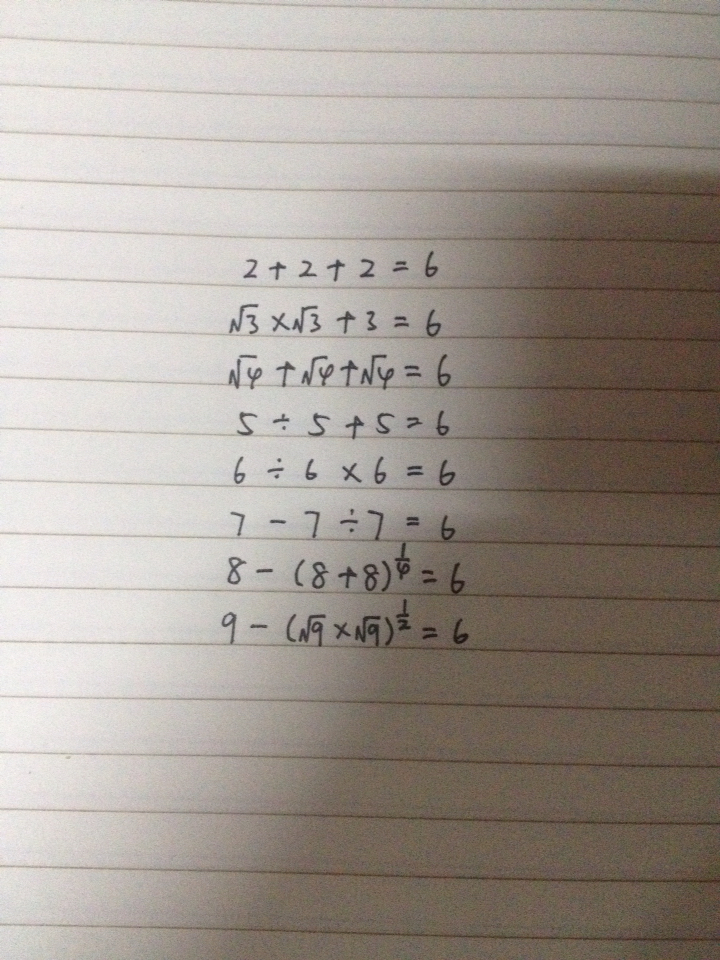 2 + 2 + 2 = 6
√3 × √3 + 3 = 6
√4 + √4 + √4 = 6
5 ÷ 5 + 5 = 6
6 ÷ 6 × 6 = 6
7 - 7 ÷ 7 = 6
8 - (8 + 8)^(1/4) = 6
9 - (√9 × √9)^(1/2) = 6